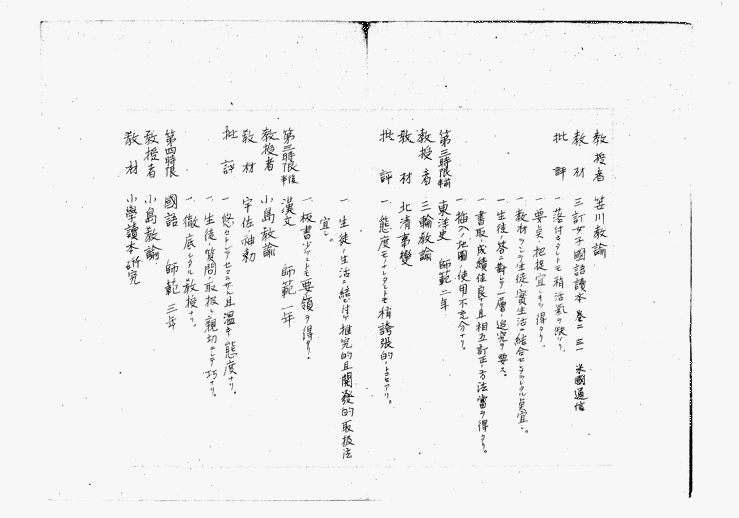 教授者 笹川教諭
教材 三訂女子國語讀本 巻二 三一 米國通信
批評 一、落付キタレトモ稍活氣ヲ缺ケリ。
一、要点ノ把捉宜シキヲ得タリ。
一、教材ヲシテ生徒ノ實生活ニ結合セシメタル点宜シ。
一、生徒ノ答ニ對シテ一層ノ追究ヲ要ス。
一、書取ノ成績佳良ニシテ且相互訂正ノ方法當ヲ得タリ。
一、插入ノ地圖ノ使用不充分ナリ。
第三時限前半 東洋史 師範二年
教授者 三輪教諭
教材 北清事變
批評 一、態度モ 稍誇張的ノトコロアリ。
一、生徒ノ生活ニ結ヒ付ケ推究的且開發的取扱法
宜シ。
一、板書少ケレトモ要領ヲ得タリ。
第三時限後半 漢文 師範一年
教授者 小島教諭
教材 宇佐神勅
批評 一、悠々トシテセマラス且温キ態度ナリ。
一、生徒ノ質問ノ取扱ヒ親切ニシテ巧ナリ。
一、徹底シタル教授ナリ。
第四時限 國語 師範三年
教授者 小島教諭
教材 小學讀本研究